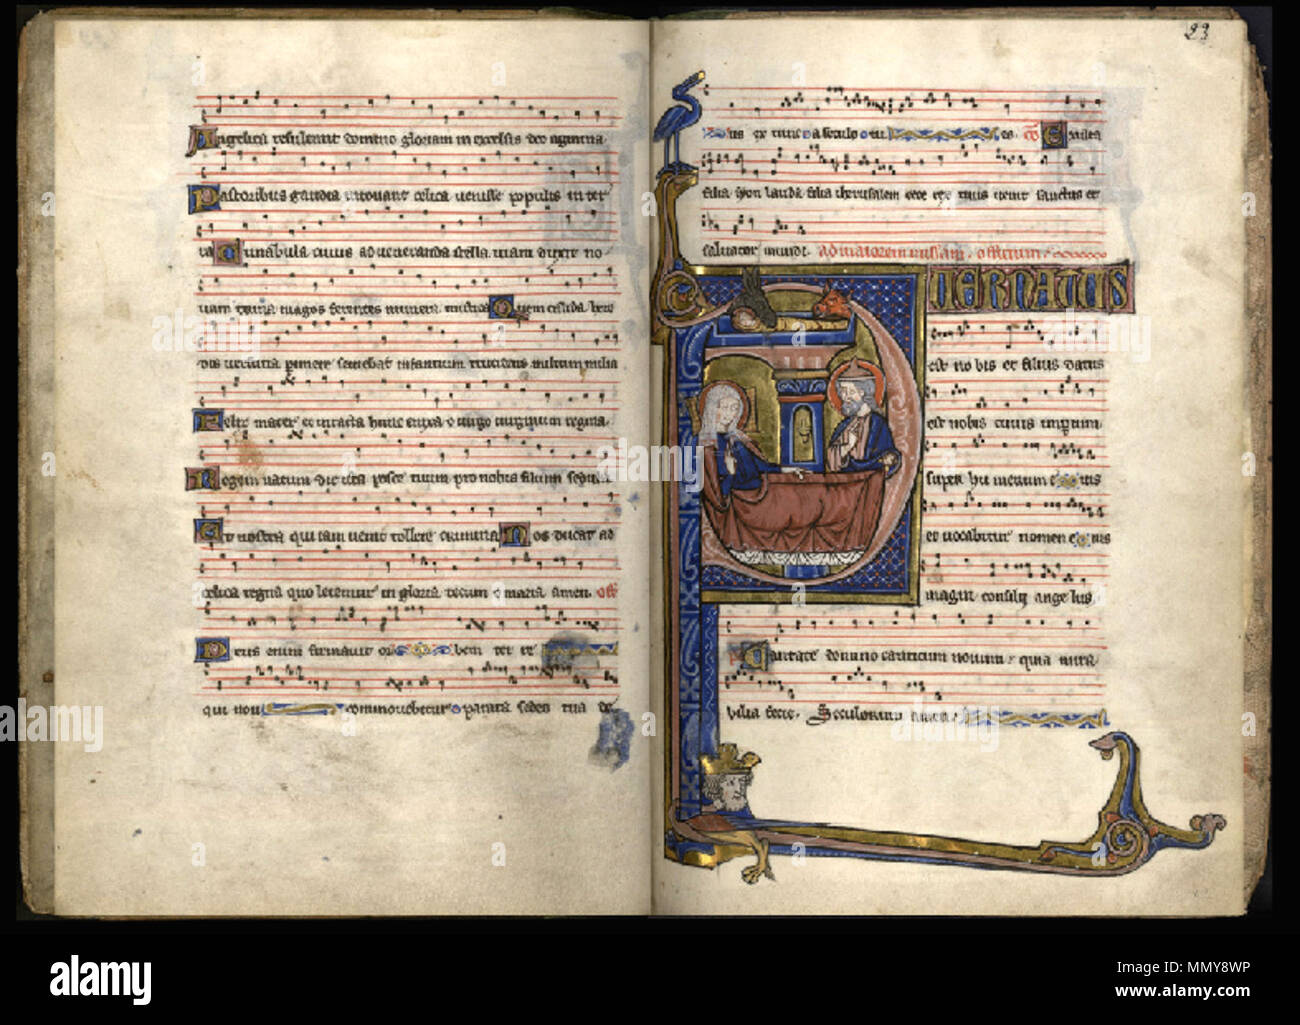 Angelica resultent domino gloriam in excelsis deo agmina
Pastoribus gaudia intonant celica uenisse populis in ter
ra Cunabula cuius ad ueneranda stella uiam dixere no
uam magos ferentes munera mistica Quem
Felix mater et intacta hunc enixa o uirgo uirginum regina
Regem natum die ista posce tuum pro nobis filium
nostra qui uenit tollere crimina Nos ducat ad
celica regna quo letemur in gloria tecum o maria amen Off
Deus enim firmauit or bem ter re
qui non commouebitur parata sedes tua de
23
us ex tunc a seculo tu es co Exulta
filia syon lauda filia iherusalem ecce rex tuus uenit sanctus et
saluator mundi ad maiorem missam officium
PUERNATUS
est no bis et filius datus
est nobis cuius imperium
super hu merum e ius
et uocabitur nomen e ius
magni consilij ange lus
Cantate domino canticum nouum quia mira
bilia fecit Seculorum amen
alamy
Image ID: MMY8WP
www.alamy.com